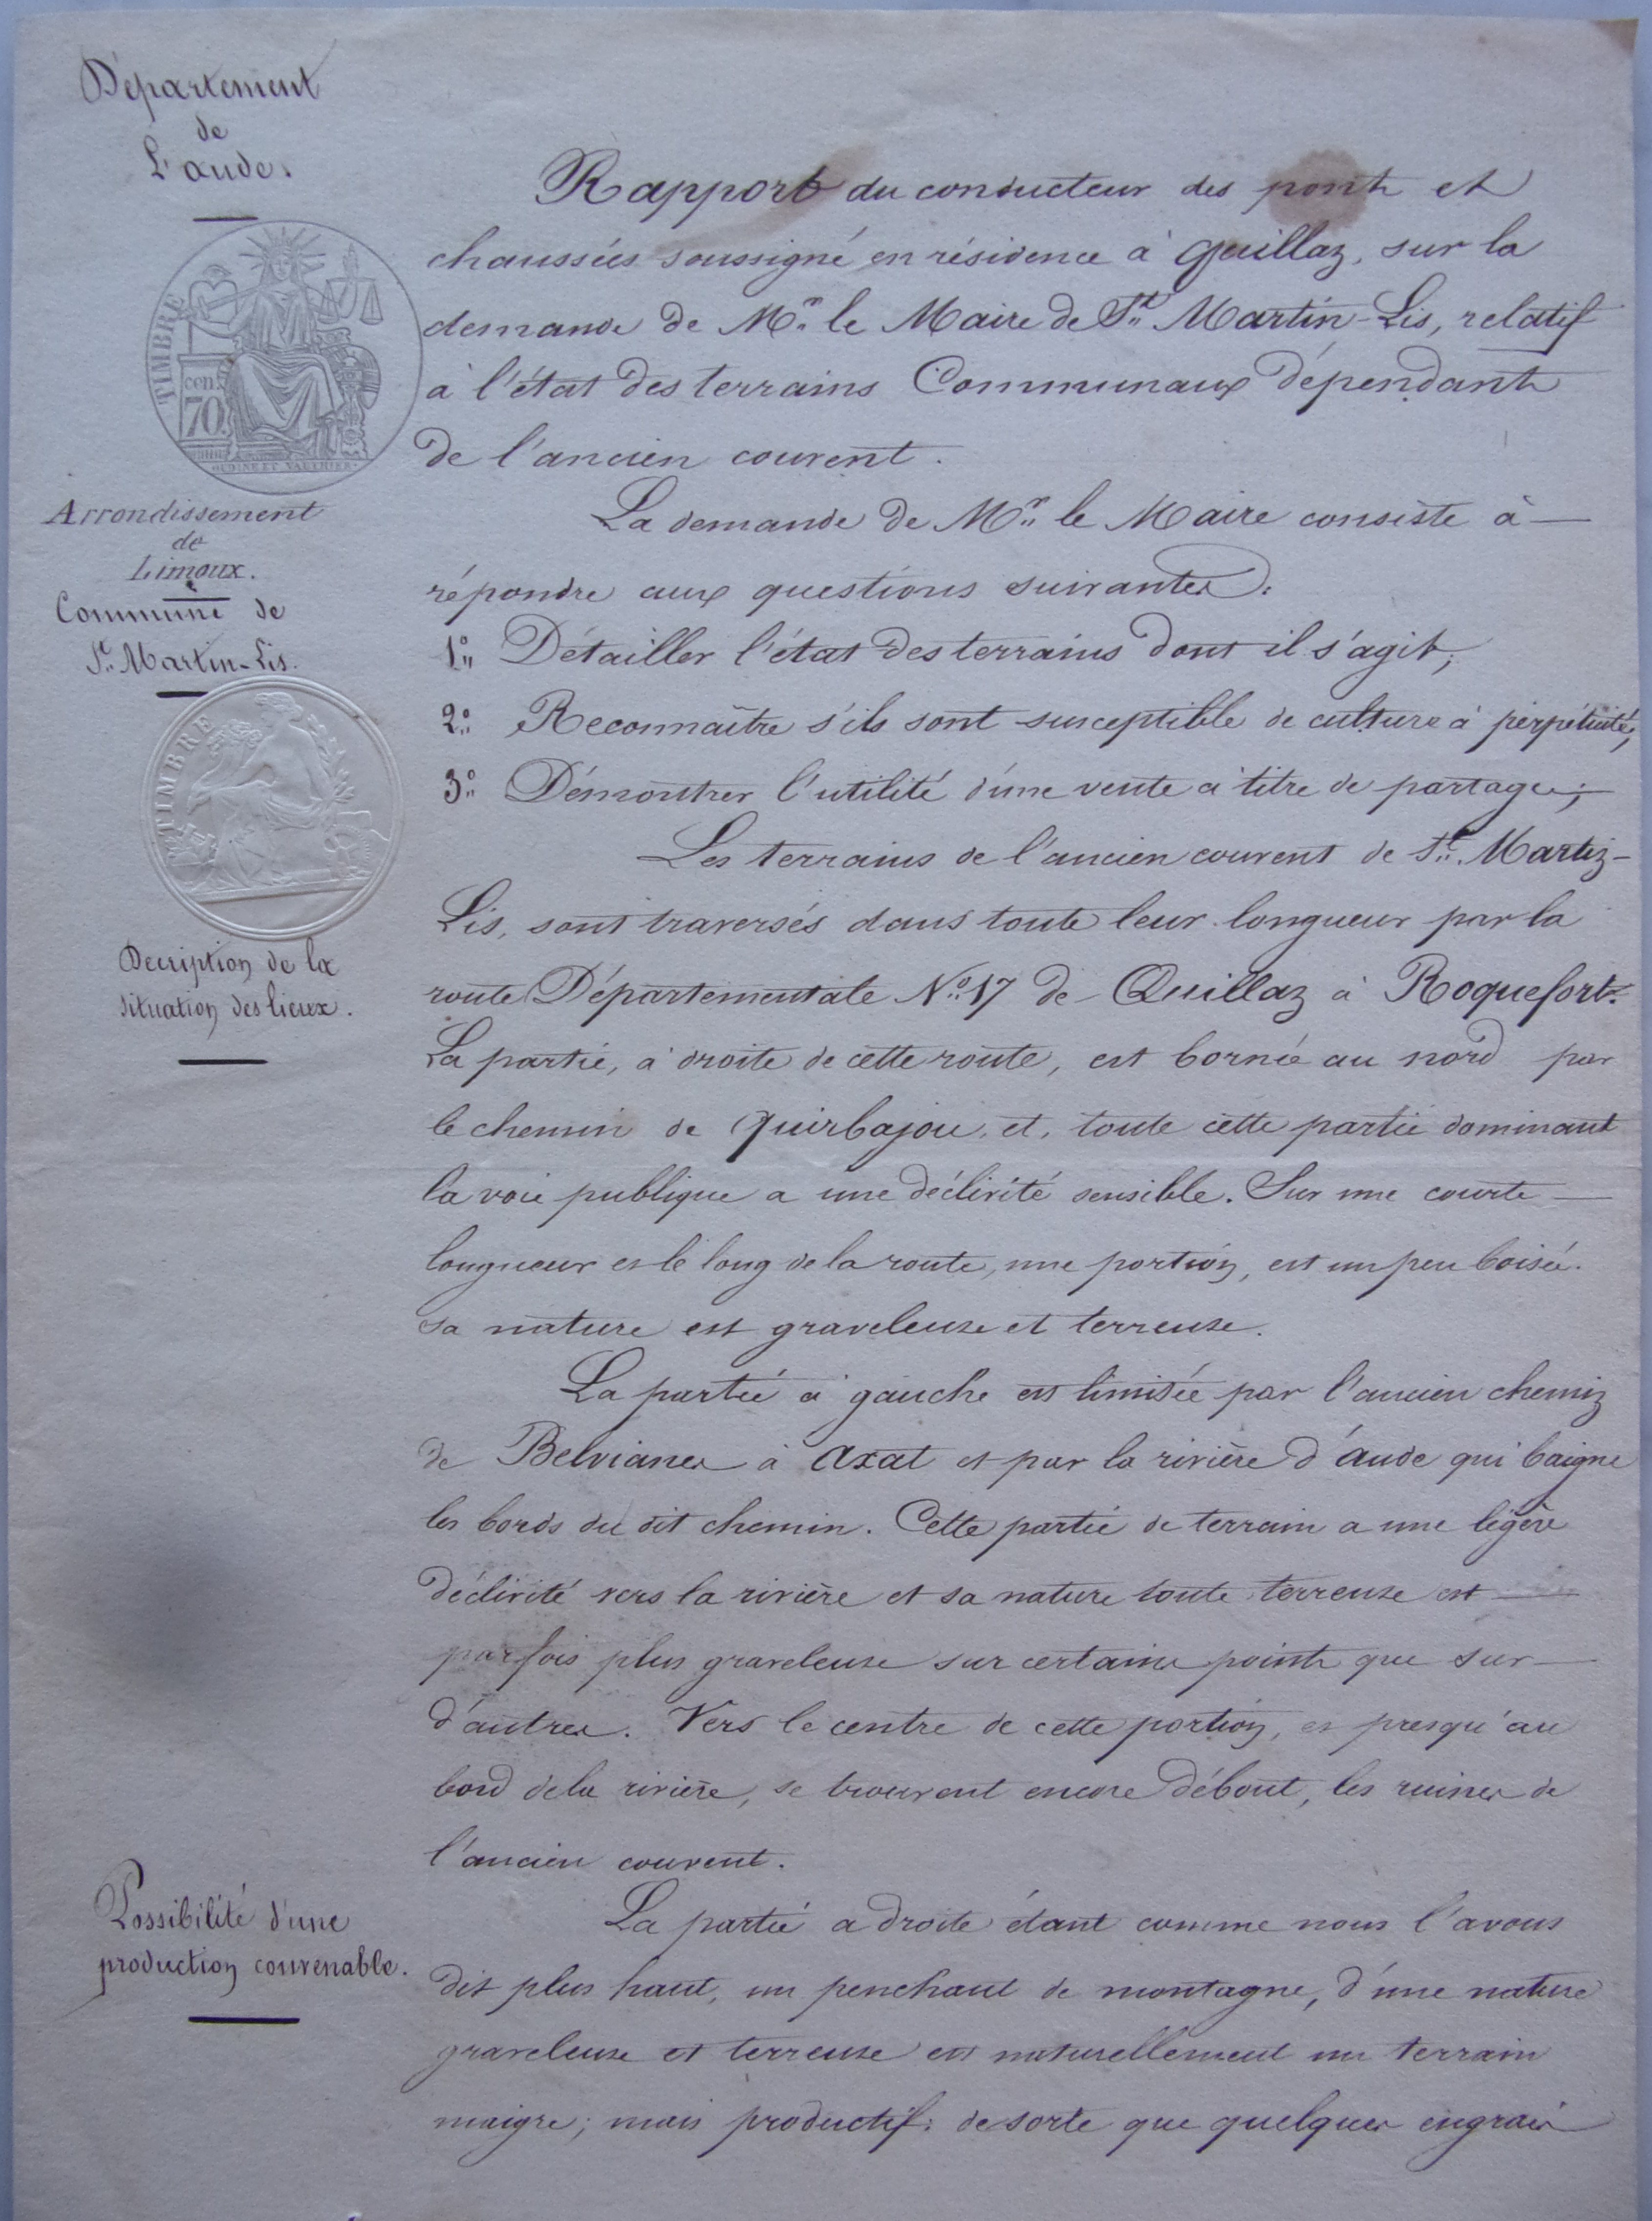 Département
de
L'aude.
TIMBRE
cen.
70.
OUDINE ET VAUTHIER
Arrondissement
de
Limoux.
Commune de
St. Martin-Lis.
TIMBRE
Decription de la
situation des lieux.
Possibilité d'une
production convenable.
Rapport du conducteur des ponts et
chaussées soussigné en résidence à Quillan, sur la
demande de Mr. le Maire de St. Martin-Lis, relatif
à l'état des terrains Communaux dépendants
de l'ancien couvent.
La demande de Mr. le Maire consiste à —
répondre aux questions suivantes:
1o. Détailler l'état des terrains dont il s'agit;
2o. Reconnaître s'ils sont susceptible de culture à pérpétuité;
3o. Démontrer l'utilité d'une vente à titre de partage; —
Les terrains de l'ancien couvent de St. Martin-
Lis, sont traversés dans toute leur longueur par la
route Départementale No. 17 de Quillan à Roquefort.
La partie, à droite de cette route, est bornée au nord par
le chemin de Quirbajou, et, toute cette partie dominant
la voie publique a une déclivité sensible. Sur une courte —
longueur et le long de la route, une portion, est un peu boisée.
sa nature est graveleuse et terreuse.
La partie à gauche est limitée par l'ancien chemin
de Belvianes à Axat et par la rivière d'aude qui baigne
les bords du dit chemin. Cette partie de terrain a une légère
déclivité vers la rivière et sa nature toute terreuse est —
parfois plus graveleuse sur certains points que sur —
d'autres. Vers le centre de cette portion, et presqu'au
bord de la rivière, se trouvent encore débout, les ruines de
l'ancien couvent.
La partie a droite étant comme nous l'avons
dit plus haut, un penchant de montagne, d'une nature
graveleuse et terreuse est naturellement un terrain
maigre; mais productif: de sorte que quelques engrais